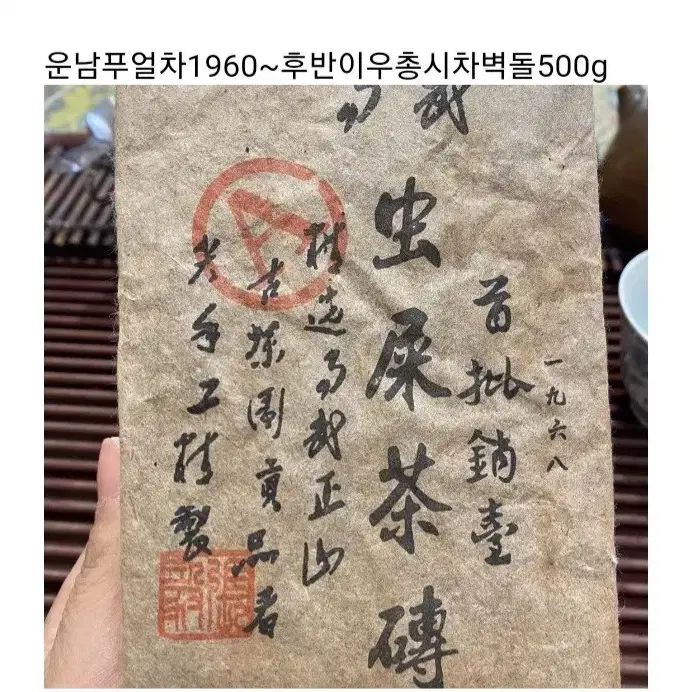 운남푸얼차1960~후반이우총시차벽돌500g
易武
一九六八
首批銷臺
虫屎茶磚
精选易武正山
古茶園貢品者
手工精製